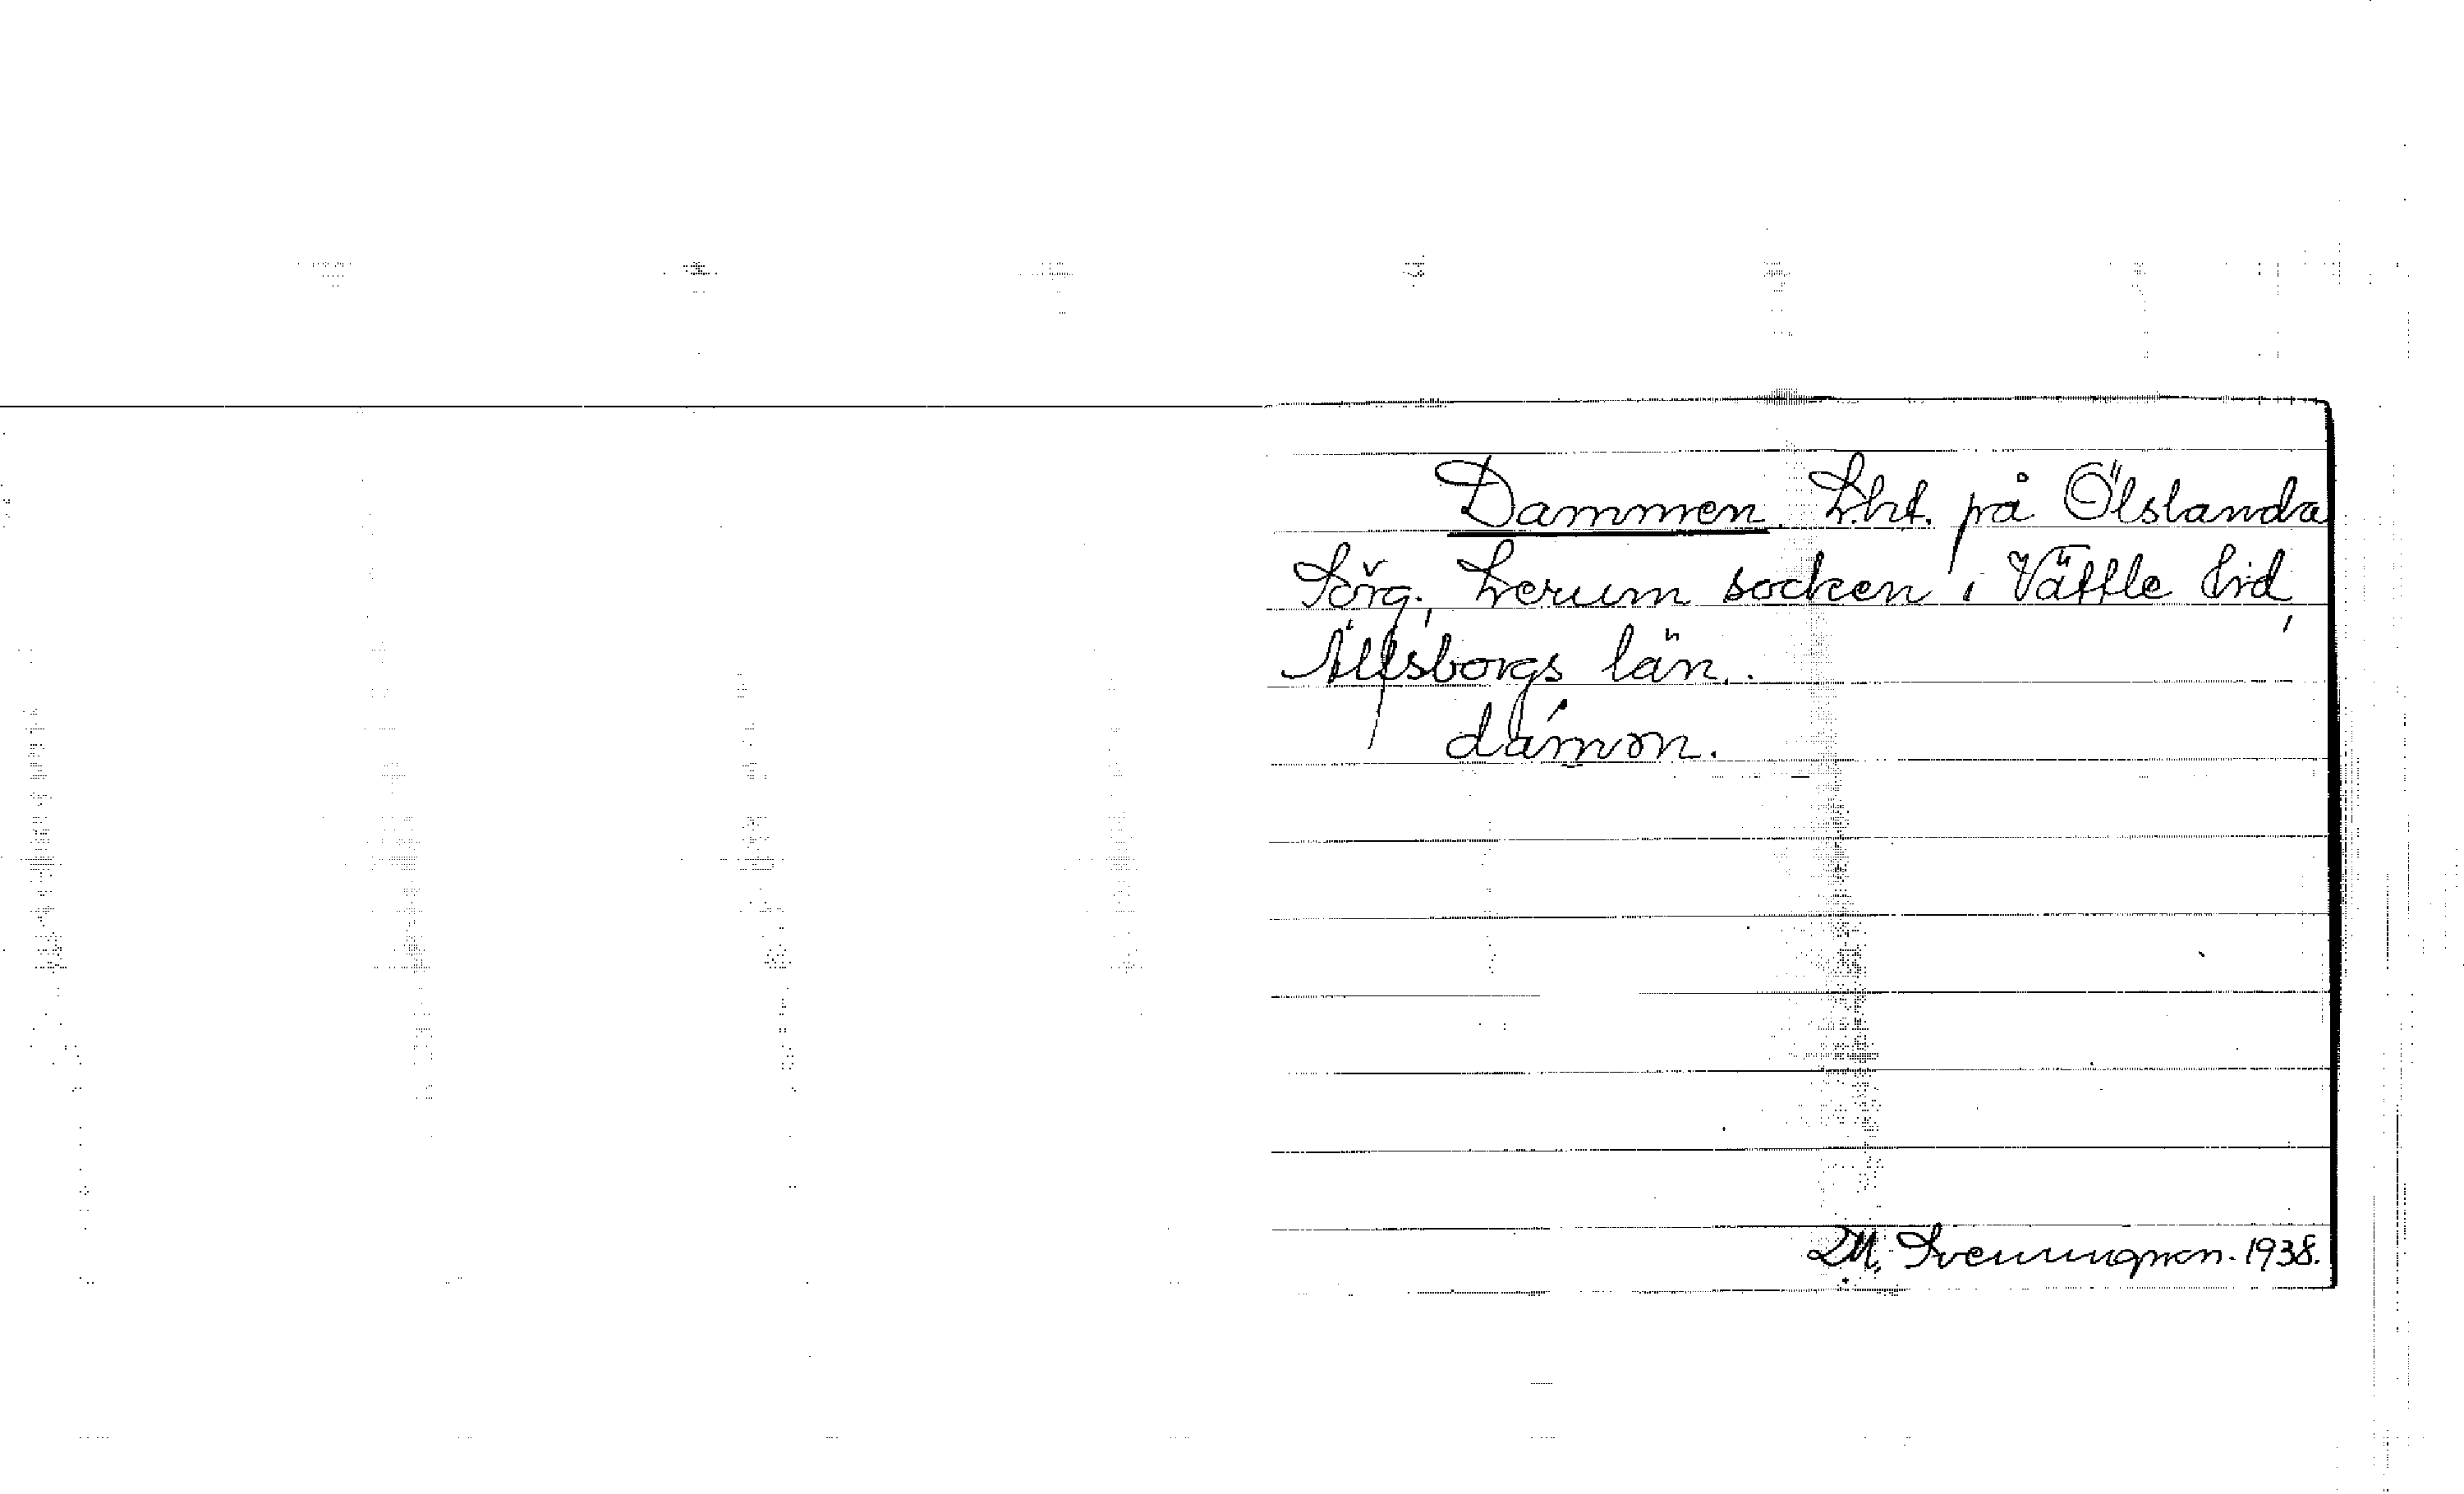 Dammen. Lht. på Ölslanda
Sörg., Lerum socken i Vättle hd,
Älfsborgs län.
dámon.
D.M. Svenningson. 1938.